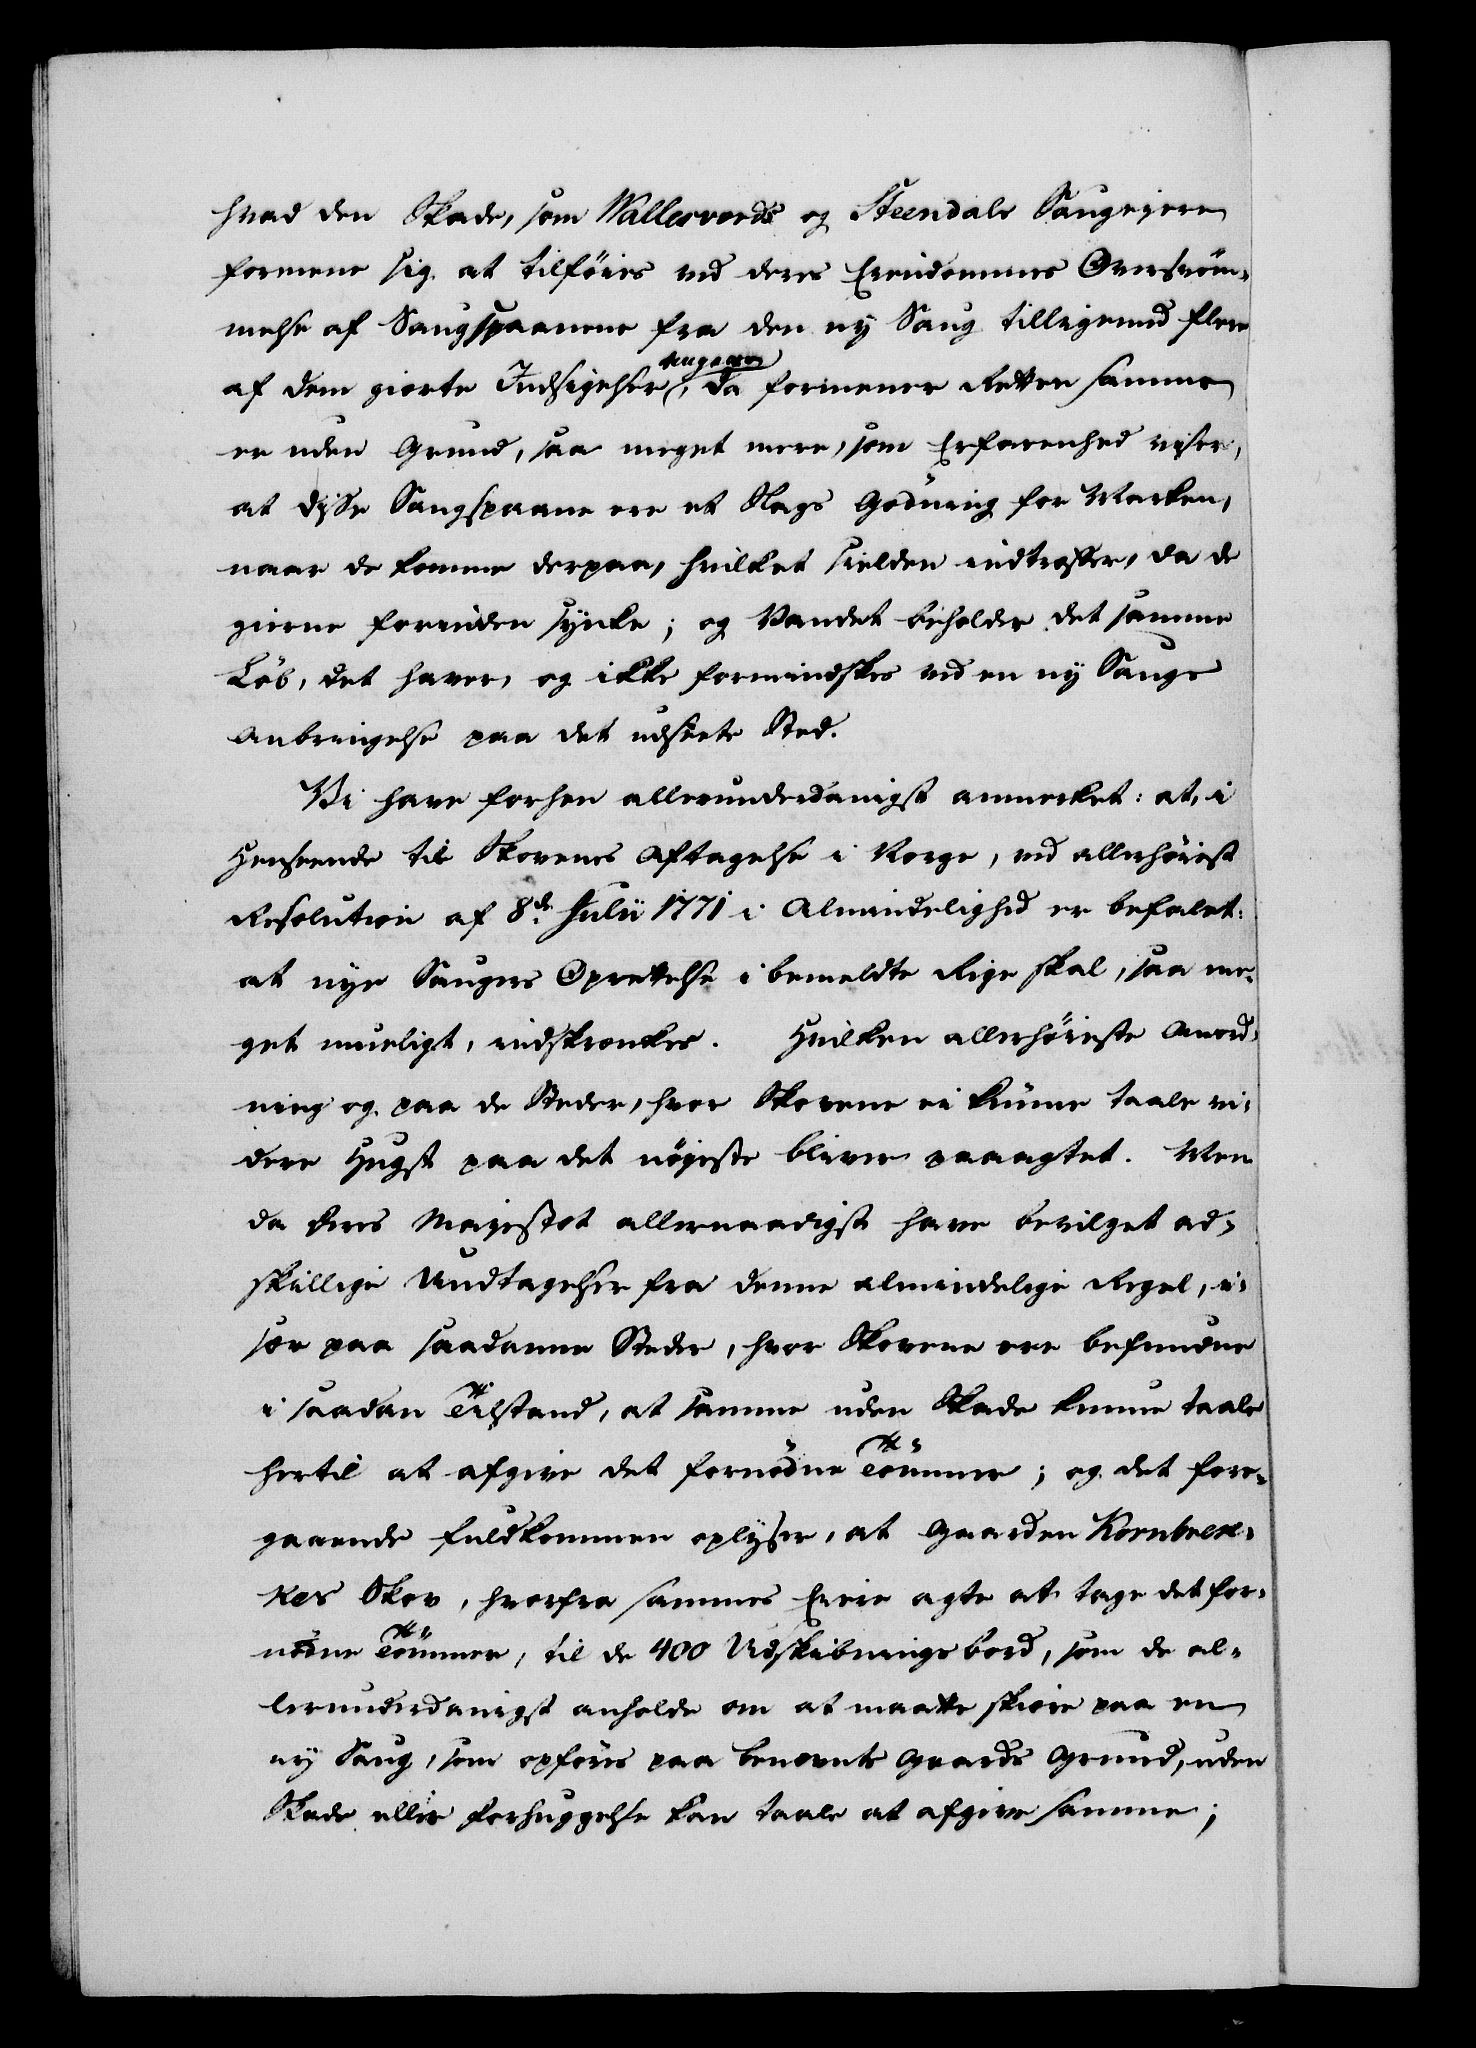 hvad den Skade, som Wallesverds og Steendals Saugejere
formene sig at tilføies ved deres Eiendommes Oversvöm-
melse af Saugspaanene fra den ny Saug tilligemed flere
af dem giorte Indsigelser angaaer, da formener Retten samme
er uden Grund, saa meget mere, som Erfarenhed viser,
at disse Saugspaane ere et Slags Gödning for Marken,
naar de komme derpaa, hvilket sielden indtreffer, da de
gierne forinden synke; og Vandet beholder det samme
Löb, det haver, og ikke formindskes ved en ny Saugs
Anbringelse paa det udseete Sted.
Vi have forhen allerunderdanigst anmerket: at, i
Henseende til Skovenes Aftagelse i Norge, ved allerhöieste
Resolution af 8de Julii 1771 i Almindelighed er befalet:
at nye Sauges Oprettelse i bemeldte Rige skal, saa me-
get mueligt, indskrenkes. Hvilken allerhöieste Anord-
ning og paa de Steder, hvor Skovene ei kunne taale vi-
dere Hugst paa det nöieste bliver paaagtet. Men
da Deres Majestet allernaadigst have bevilget ad-
skillige Undtagelser fra denne almindelige Regel, i-
sær paa saadanne Steder, hvor Skovene ere befundne
i saadan Tilstand, at samme uden Skade kunne taale
hertil at afgive det fornödne Tömmer; og det fore-
gaaende fuldkommen oplyser, at Gaarden Kornbrek-
kes Skov, hvorfra sammes Eiere agte at tage det for-
nödne Tömmer, til de 400 Udskibningsbord, som de al-
lerunderdanigst anholde om at maatte skiære paa en
ny Saug, som opföres paa benevnte Gaards Grund, uden
Skade eller Forhuggelse kan taale at afgive samme;